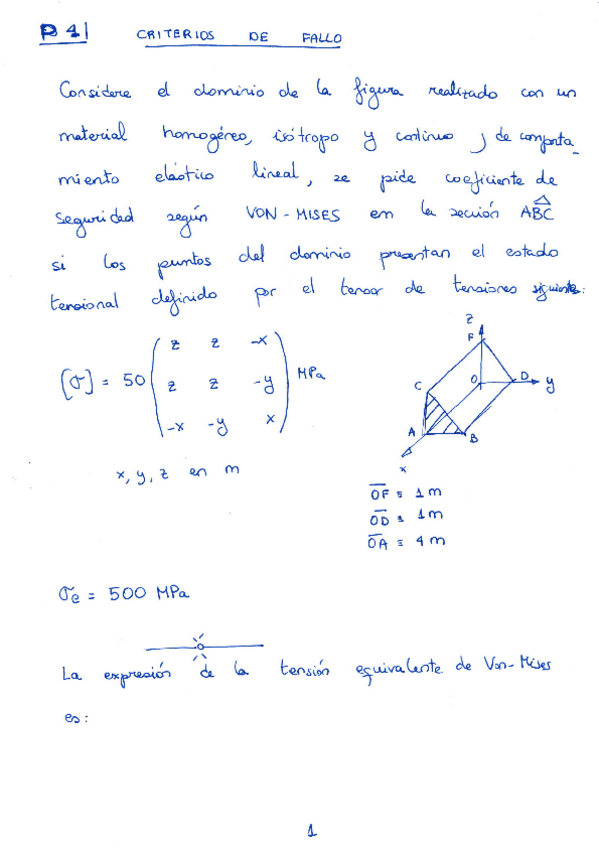 P41 CRITERIOS DE FALLO
Considere el dominio de la figura realizado con un
material homogéneo, isótropo y continuo y de comporta_
miento elástico lineal, se pide coeficiente de
seguridad según VON-MISES en la sección ABC
si los puntos del dominio presentan el estado
tensional definido por el tensor de tensiones siguiente:
[σ] = 50 ( z z -x
z z -y
-x -y x ) MPa
x, y, z en m
z
F
O
D
y
C
A
B
x
OF = 1m
OD = 1m
OA = 4m
σe = 500 MPa
La expresión de la tensión equivalente de Von-Mises
es:
1